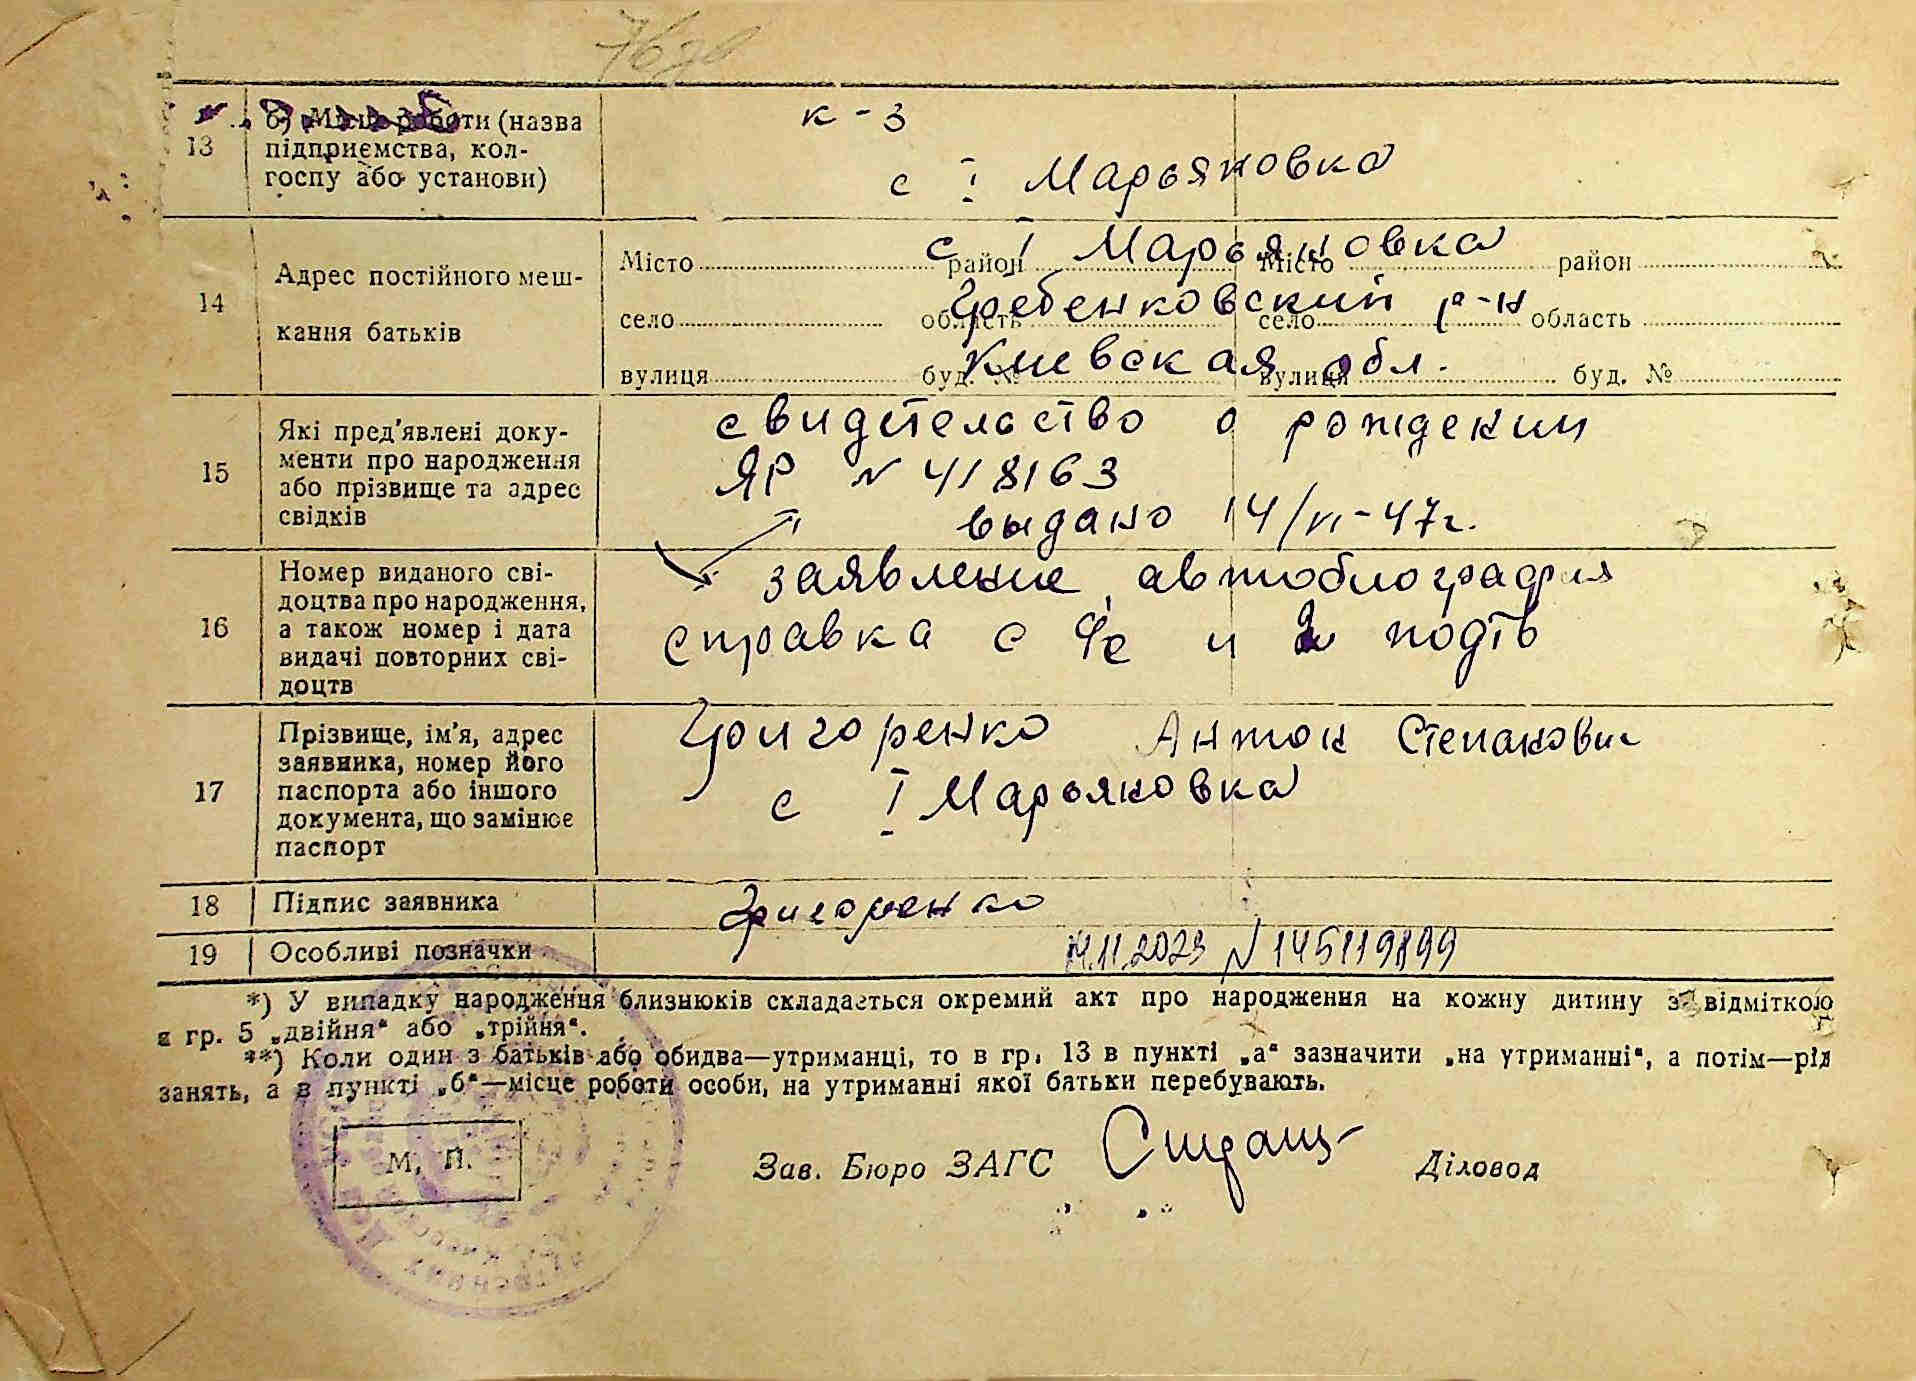 76 зв
13 б) Місце роботи (назва підприємства, колгоспу або установи)
к-з
с І Марьяновка
14 Адрес постійного мешкання батьків
Місто район Місто район
с І Марьяновка
село область село область
Гребенковский р-н
вулиця буд. № вулиця буд. №
Киевская обл.
15 Які пред'явлені документи про народження або прізвище та адрес свідків
свидетельство о рождении
ЯР № 418163
выдано 14/VI-47г.
16 Номер виданого свідоцтва про народження, а також номер і дата видачі повторних свідоцтв
заявление, автобиография
справка с и подтв
17 Прізвище, ім'я, адрес заявника, номер його паспорта або іншого документа, що замінює паспорт
Григоренко Антон Степанович
с І Марьяновка
18 Підпис заявника
Григоренко
19 Особливі позначки
14.11.2023 N 145119899
*) У випадку народження близнюків складається окремий акт про народження на кожну дитину з відміткою
в гр. 5 „двійня“ або „трійня“.
**) Коли один з батьків або обидва—утриманці, то в гр. 13 в пункті „а“ зазначити „на утриманні“, а потім—рід
занять, а в пункті „б“—місце роботи особи, на утриманні якої батьки перебувають.
М. П.
Зав. Бюро ЗАГС
Діловод